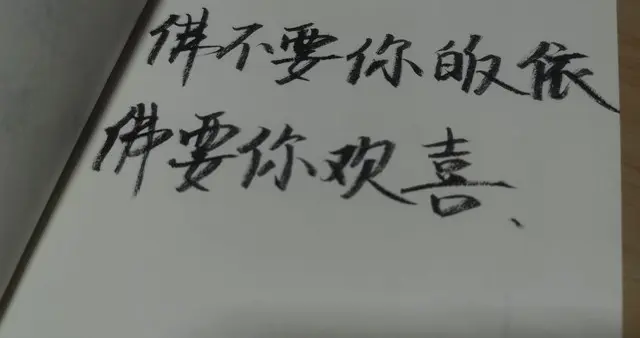 佛不要你皈依
佛要你欢喜、